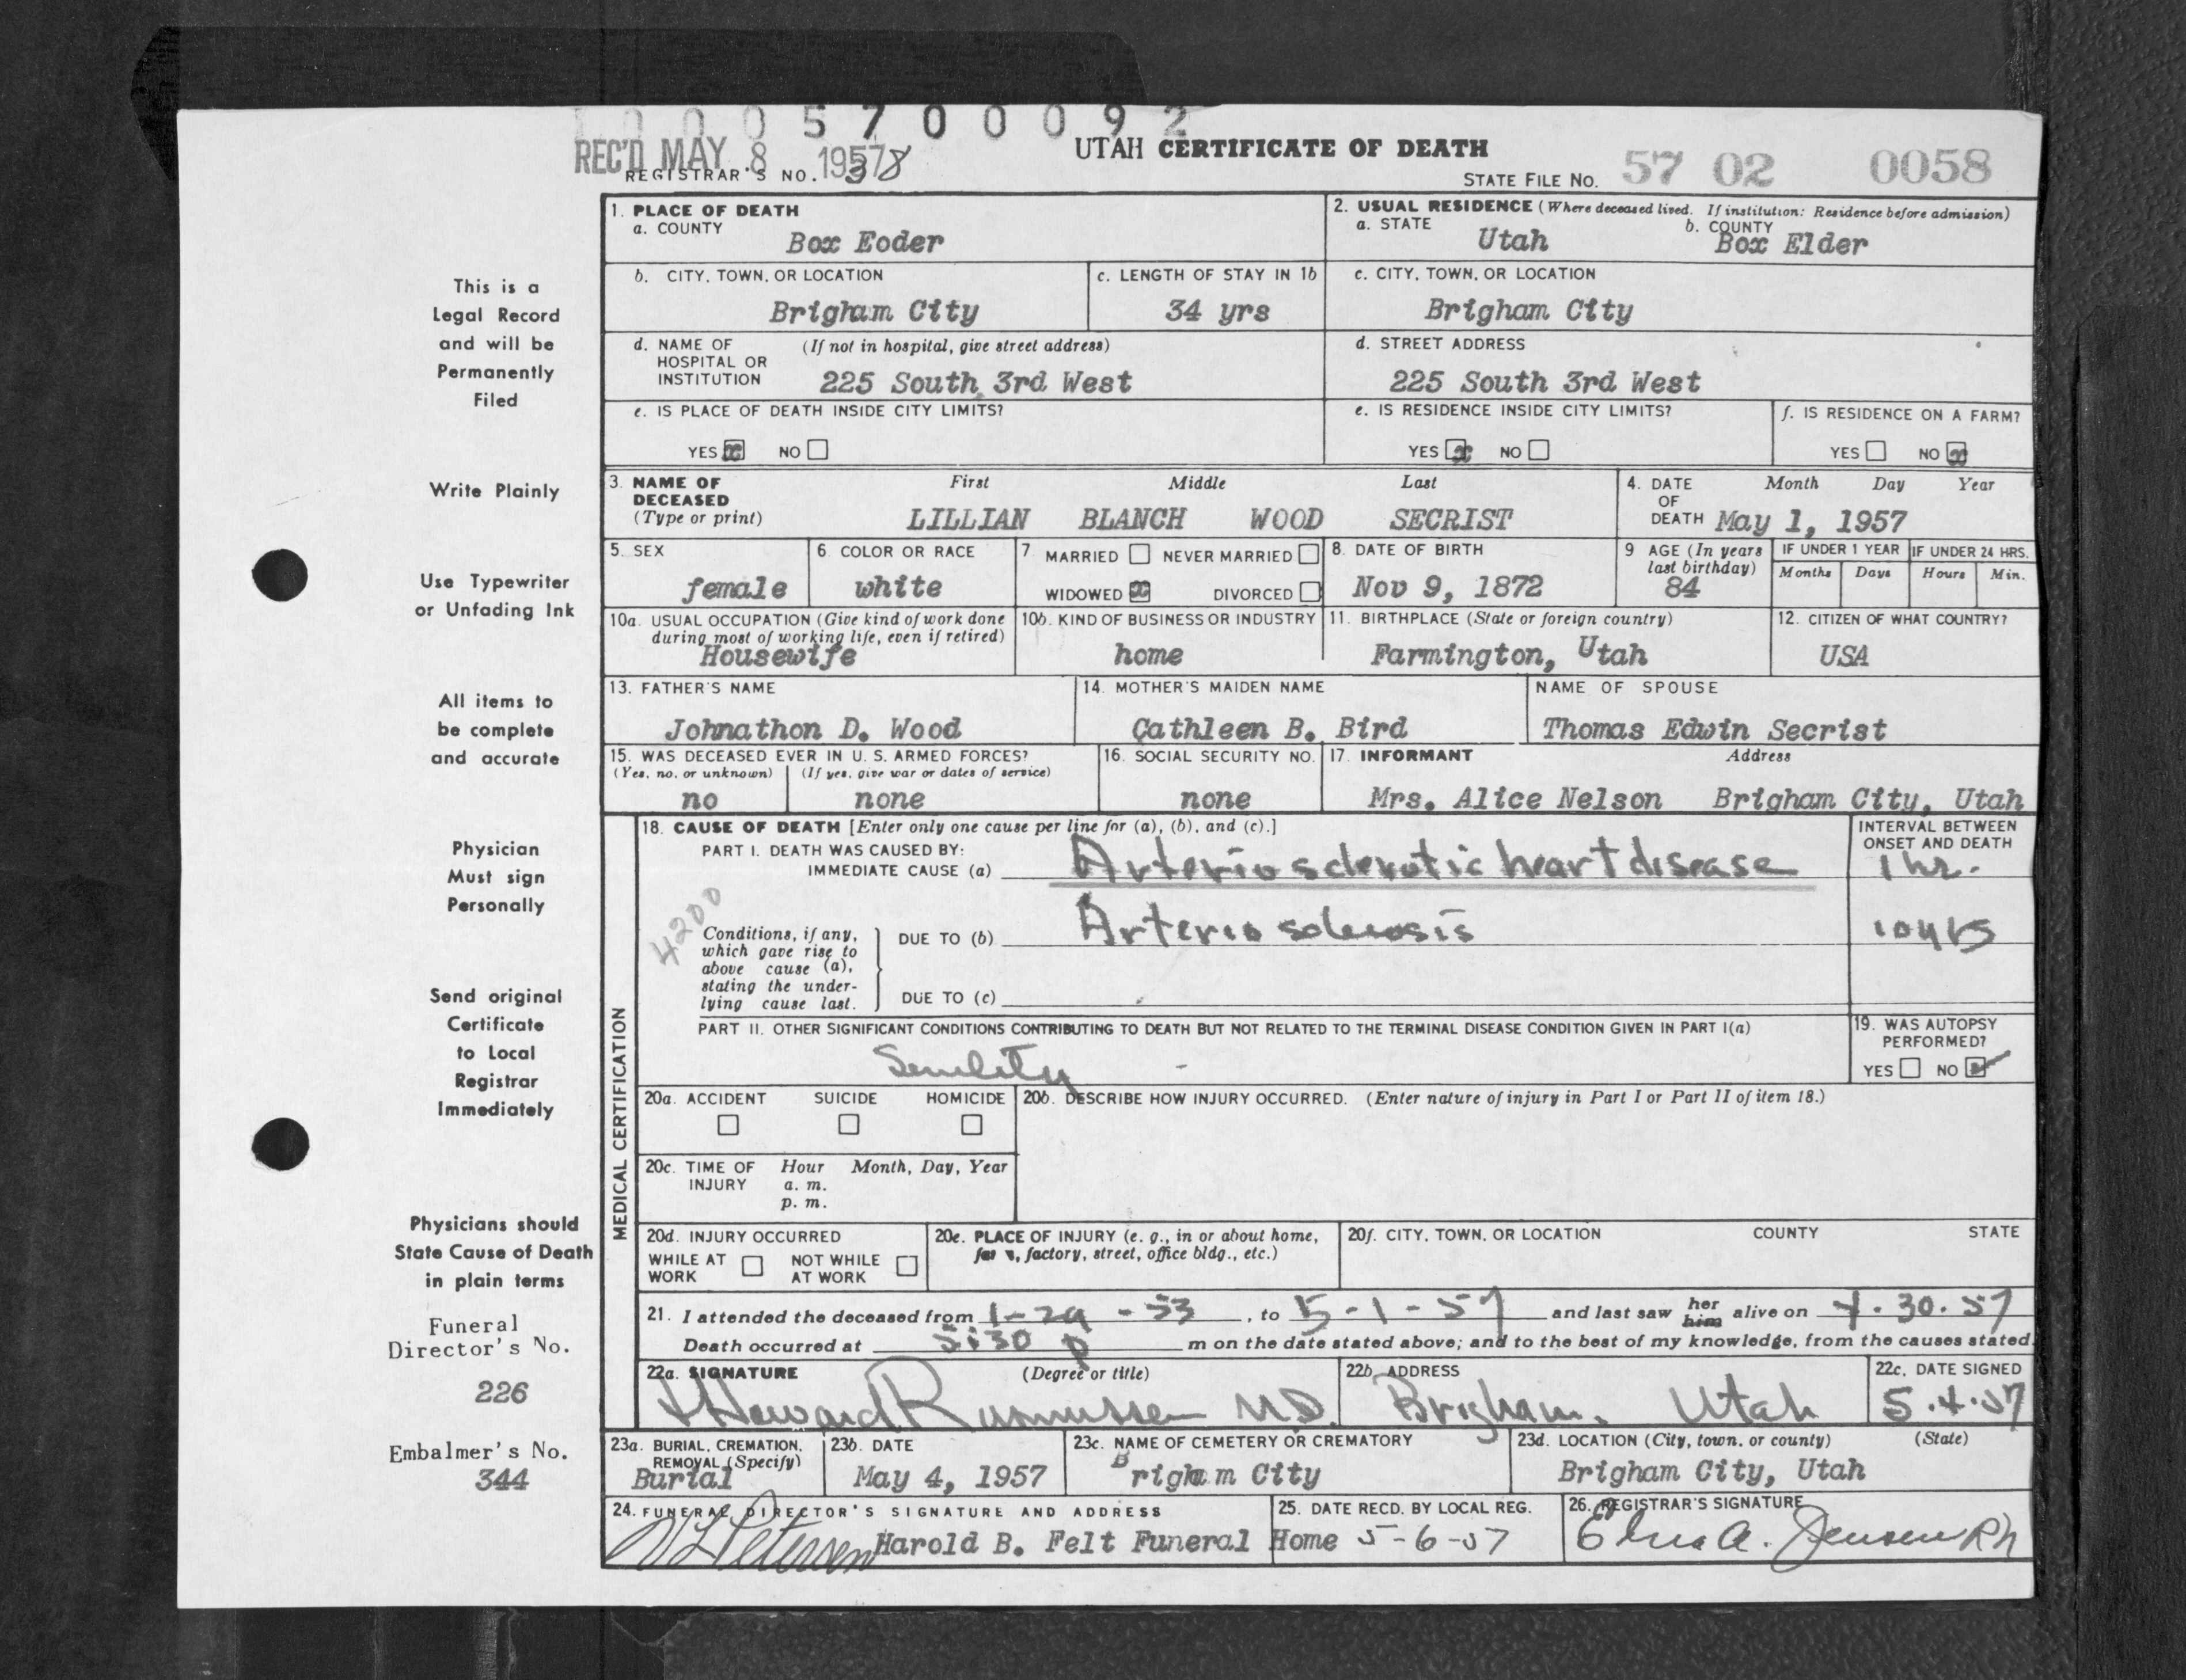 1 0 0 0 5 7 0 0 0 9 2
REC'D MAY 8 1957
REGISTRAR'S NO. 38
UTAH CERTIFICATE OF DEATH
STATE FILE NO. 57 02 0058
1. PLACE OF DEATH
a. COUNTY
Box Eoder
2. USUAL RESIDENCE (Where deceased lived. If institution: Residence before admission)
a. STATE
Utah
b. COUNTY
Box Elder
b. CITY, TOWN, OR LOCATION
Brigham City
c. LENGTH OF STAY IN 1b
34 yrs
c. CITY, TOWN, OR LOCATION
Brigham City
d. NAME OF (If not in hospital, give street address)
HOSPITAL OR
INSTITUTION 225 South 3rd West
d. STREET ADDRESS
225 South 3rd West
e. IS PLACE OF DEATH INSIDE CITY LIMITS?
YES x NO
e. IS RESIDENCE INSIDE CITY LIMITS?
YES x NO
f. IS RESIDENCE ON A FARM?
YES NO x
3. NAME OF DECEASED
(Type or print)
First Middle Last
LILLIAN BLANCH WOOD SECRIST
4. DATE OF DEATH
Month Day Year
May 1, 1957
5. SEX
female
6. COLOR OR RACE
white
7. MARRIED NEVER MARRIED
WIDOWED x DIVORCED
8. DATE OF BIRTH
Nov 9, 1872
9 AGE (In years last birthday)
84
IF UNDER 1 YEAR
Months Days
IF UNDER 24 HRS.
Hours Min.
10a. USUAL OCCUPATION (Give kind of work done
during most of working life, even if retired)
Housewife
10b. KIND OF BUSINESS OR INDUSTRY
home
11. BIRTHPLACE (State or foreign country)
Farmington, Utah
12. CITIZEN OF WHAT COUNTRY?
USA
13. FATHER'S NAME
Johnathon D. Wood
14. MOTHER'S MAIDEN NAME
Cathleen B. Bird
NAME OF SPOUSE
Thomas Edwin Secrist
15. WAS DECEASED EVER IN U. S. ARMED FORCES?
(Yes, no, or unknown) (If yes, give war or dates of service)
no none
16. SOCIAL SECURITY NO.
none
17. INFORMANT Address
Mrs. Alice Nelson Brigham City, Utah
MEDICAL CERTIFICATION
18. CAUSE OF DEATH [Enter only one cause per line for (a), (b), and (c).]
PART I. DEATH WAS CAUSED BY:
IMMEDIATE CAUSE (a) Arteriosclerotic heart disease
INTERVAL BETWEEN
ONSET AND DEATH
1 hr.
4200
Conditions, if any,
which gave rise to
above cause (a),
stating the under-
lying cause last.
DUE TO (b) Arteriosclerosis
10 yrs
DUE TO (c)
PART II. OTHER SIGNIFICANT CONDITIONS CONTRIBUTING TO DEATH BUT NOT RELATED TO THE TERMINAL DISEASE CONDITION GIVEN IN PART I(a)
Senility -
19. WAS AUTOPSY
PERFORMED?
YES NO
20a. ACCIDENT SUICIDE HOMICIDE
20b. DESCRIBE HOW INJURY OCCURRED. (Enter nature of injury in Part I or Part II of item 18.)
20c. TIME OF INJURY
Hour Month, Day, Year
a. m.
p. m.
20d. INJURY OCCURRED
WHILE AT WORK
NOT WHILE AT WORK
20e. PLACE OF INJURY (e. g., in or about home,
factory, street, office bldg., etc.)
20f. CITY, TOWN, OR LOCATION COUNTY STATE
21. I attended the deceased from 1-29-53, to 5-1-57 and last saw her him alive on 4.30.57
Death occurred at 5:30 p m on the date stated above; and to the best of my knowledge, from the causes stated.
22a. SIGNATURE (Degree or title)
Howard Rasmussen M.D.
22b. ADDRESS
Brigham, Utah
22c. DATE SIGNED
5.4.57
23a. BURIAL, CREMATION,
REMOVAL (Specify)
Burial
23b. DATE
May 4, 1957
23c. NAME OF CEMETERY OR CREMATORY
Brigham City
23d. LOCATION (City, town, or county) (State)
Brigham City, Utah
24. FUNERAL DIRECTOR'S SIGNATURE AND ADDRESS
Petersen Harold B. Felt Funeral Home
25. DATE RECD. BY LOCAL REG.
5-6-57
26. REGISTRAR'S SIGNATURE
A. Jensen RN
This is a
Legal Record
and will be
Permanently
Filed
Write Plainly
Use Typewriter
or Unfading Ink
All items to
be complete
and accurate
Physician
Must sign
Personally
Send original
Certificate
to Local
Registrar
Immediately
Physicians should
State Cause of Death
in plain terms
Funeral
Director's No.
226
Embalmer's No.
344